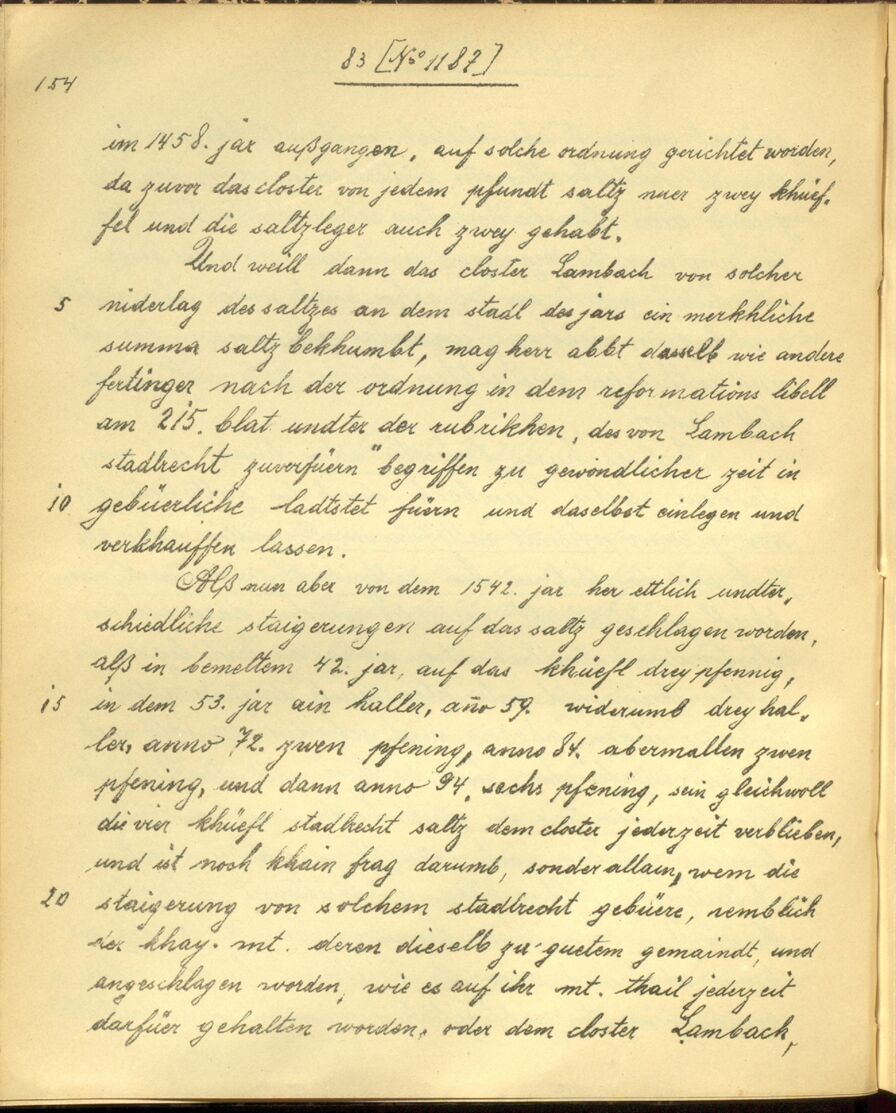 83 [No 1187]
154
im 1458. jar außgangen, auf solche ordnung gerichtet worden,
da zuvor das closter von jedem pfundt saltz nuer zwey khüef-
fel und die saltzleger auch zwey gehabt.
Und weill dann das closter Lambach von solcher
5 niderlag des saltzes an dem stadl des jars ein merkhliche
summa saltz bekhumbt, mag herr abbt dasselb wie andere
fertinger nach der ordnung in dem reformations libell
am 215. blat undter der rubrikhen, des von Lambach
stadlrecht zuverfüern" begriffen zu gewondlicher zeit in
10 gebüerliche ladtstet füern und daselbst einlegen und
verkhauffen lassen.
Alß nun aber von dem 1542. jar her ettlich undter-
schiedliche staigerungen auf das saltz geschlagen worden,
alß in bemeltem 42. jar, auf das khüefl drey pfennig,
15 in dem 53. jar ain haller, año 59. widerumb drey hal-
ler, anno 72. zwen pfening, anno 84. abermallen zwen
pfening, und dann anno 94. sechs pfening, sein gleichwoll
die vier khüefl stadlrecht saltz dem closter jederzeit verblieben,
und ist noch khain frag darumb, sonder allain, wem die
20 staigerung von solchem stadlrecht gebüere, nemblich
der khay. mt. deren dieselb zu guetem gemaindt, und
angeschlagen worden, wie es auf ihr mt. thail jederzeit
darfüer gehalten worden, oder dem closter Lambach,